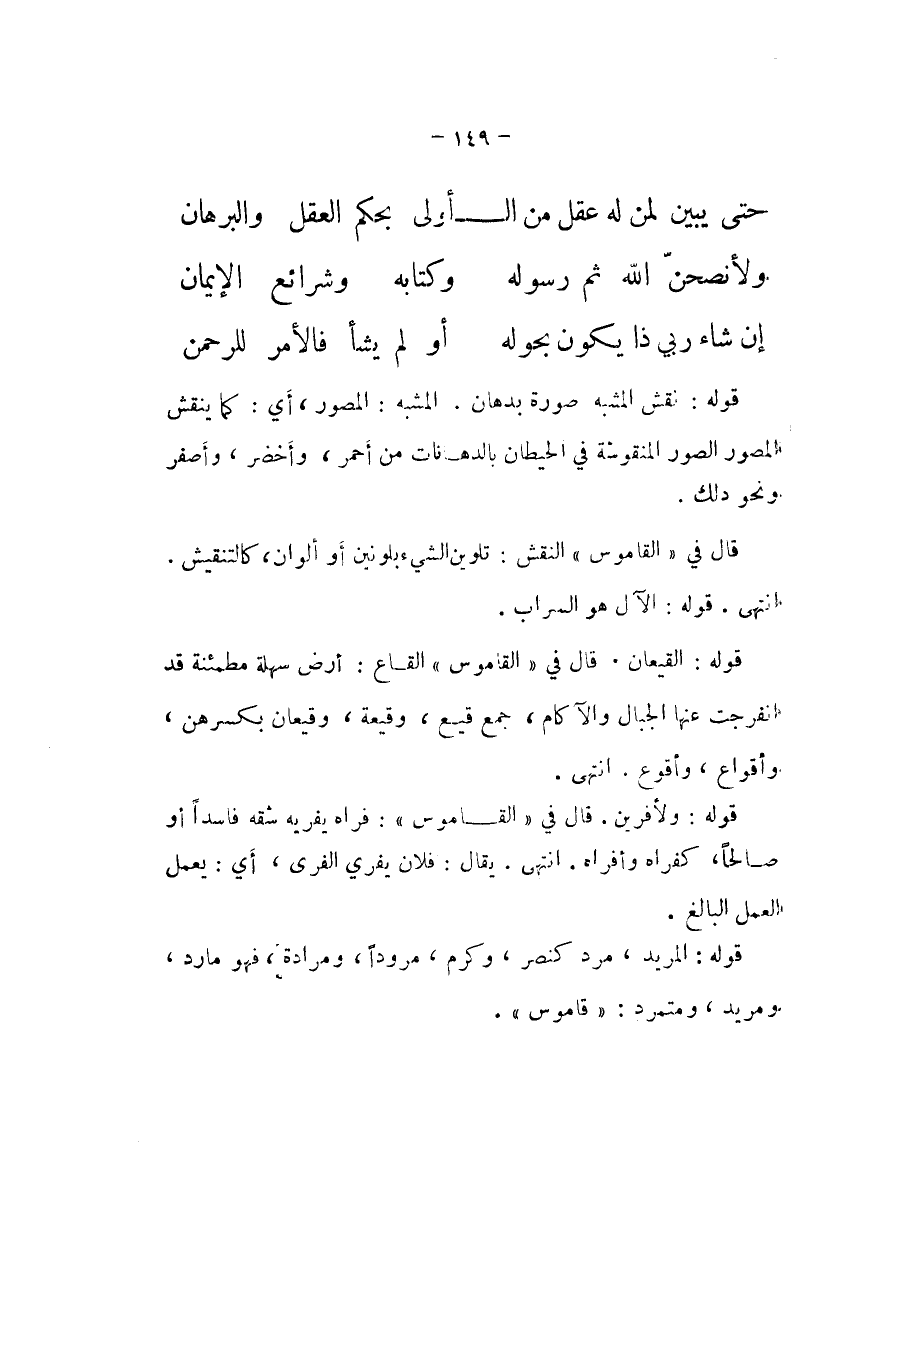 - ١٤٩ -
حتى يبين لمن له عقل من الـــأولى بحكم العقل والبرهان
ولأنصحنّ الله ثم رسوله وكتابه وشرائع الإيمان
إن شاء ربي ذا يكون بحوله أو لم يشأ فالأمر للرحمن
قوله : نقش المشبه صورة بدهان . المشبه : المصور ، أي : كما ينقش
المصور الصور المنقوشة في الحيطان بالدهانات من أحمر ، وأخضر ، وأصفر
ونحو ذلك .
قال في « القاموس » النقش : تلوين الشيء بلونين أو ألوان ، كالتنقيش .
انتهى . قوله : الآل هو السراب .
قوله : القيعان . قال في « القاموس » القـاع : أرض سهلة مطمئنة قد
انفرجت عنها الجبال والآكام ، جمع قيـع ، وقيعة ، وقيعان بكسرهن ،
وأقواع ، وأقوع . انتهى .
قوله : ولأفرين . قال في « القـــاموس » : فراه يفريه شقه فاسداً أو
صـالحاً ، كفراه وأفراه . انتهى . يقال : فلان يفري الفرى ، أي : يعمل
العمل البالغ .
قوله : المريد ، مرد كنصر ، وكرم ، مروداً ، ومرادة ، فهو مارد ،
ومريد ، ومتمرد : « قاموس » .